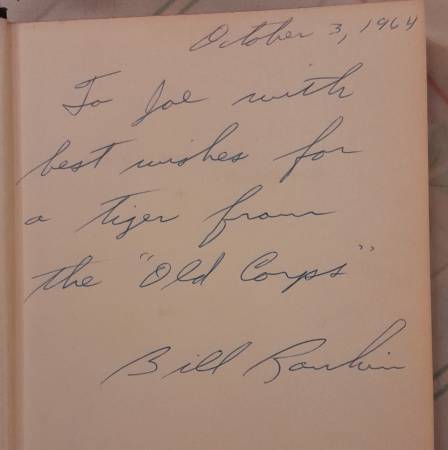 October 3, 1964
To Joe with
best wishes for
a tiger from
the "Old Corps"
Bill Rankin